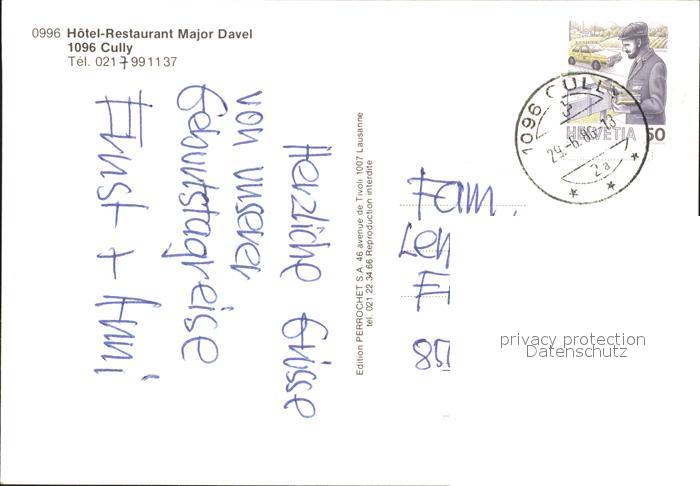 0996 Hôtel-Restaurant Major Davel
1096 Cully
Tél. 021 7 99 11 37
Herzliche Grüsse
von unserer
Geburtstagreise
Ernst + Anni
Edition PERROCHET S.A. 46 avenue de Tivoli 1007 Lausanne
tél. 021 22.34.66 Reproduction interdite
HELVETIA 50
1096 CULLY
2a
Fam.
Len
F
85
privacy protection
Datenschutz